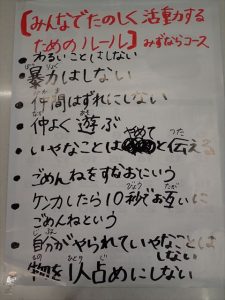 【みんなでたのしく活動する
ためのルール】みずならコース
● わるいことはしない
● 暴力はしない
● 仲間はずれにしない
● 仲よく遊ぶ
● いやなことはやめてと伝える
● ごめんねをすなおにいう
● ケンカしたら10秒でお互いに
ごめんねという
● 自分がやられていやなことはしない
● 物を1人占めにしない